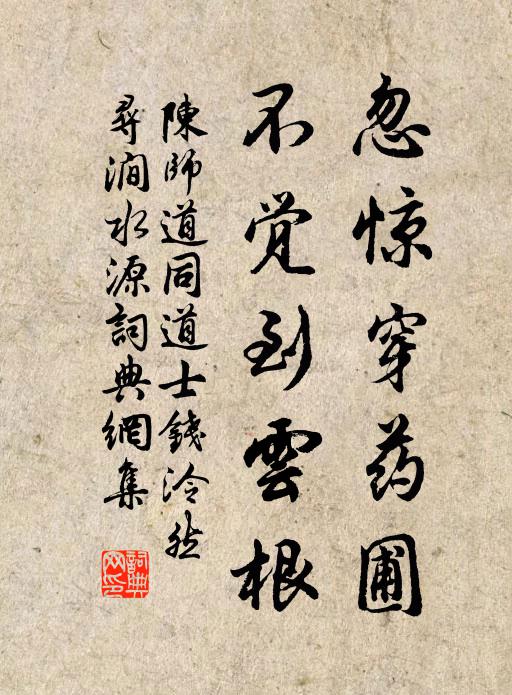 忽惊穿药圃
不觉到雲根
陳師道同道士錢泠然
尋澗水源詞典網集
詞典
网印